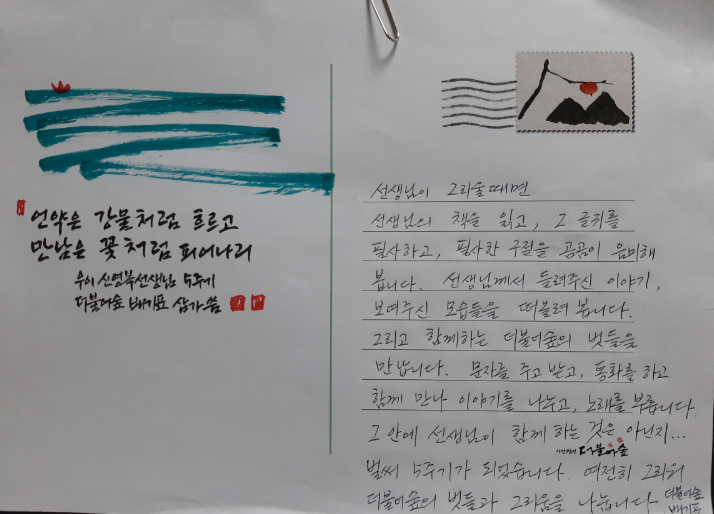 언약은 강물처럼 흐르고
만남은 꽃처럼 피어나리
우이 신영복선생님 5주기
더불어숲 배기표 삼가 씀
선생님이 그리울 때면
선생님의 책을 읽고, 그 글귀를
필사하고, 필사한 구절을 곰곰이 음미해
봅니다. 선생님께서 들려주신 이야기,
보여주신 모습들을 떠올려 봅니다.
그리고 함께하는 더불어숲의 벗들을
만납니다. 문자를 주고 받고, 통화를 하고
함께 만나 이야기를 나누고, 노래를 부릅니다.
그 안에 선생님이 함께 하는 것은 아닌지...
더불어숲
벌써 5주기가 되었습니다. 여전히 그리워
더불어숲의 벗들과 그리움을 나눕니다
더불어숲
배기표